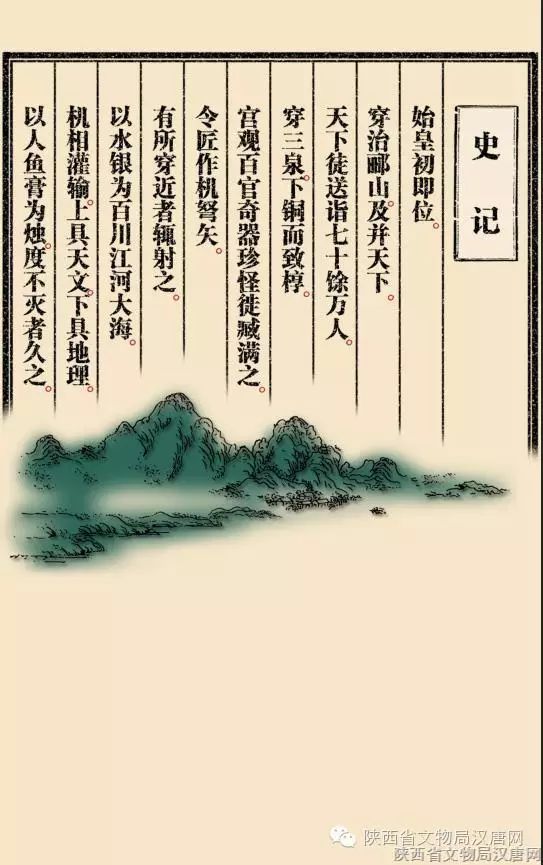 史记
始皇初即位。
穿治郦山。及并天下。
天下徒送诣七十馀万人。
穿三泉。下铜而致椁。
宫观百官奇器珍怪徙臧满之。
令匠作机弩矢。
有所穿近者辄射之。
以水银为百川江河大海。
机相灌输。上具天文。下具地理。
以人鱼膏为烛。度不灭者久之。
陕西省文物局汉唐网
陕西省文物局汉唐网